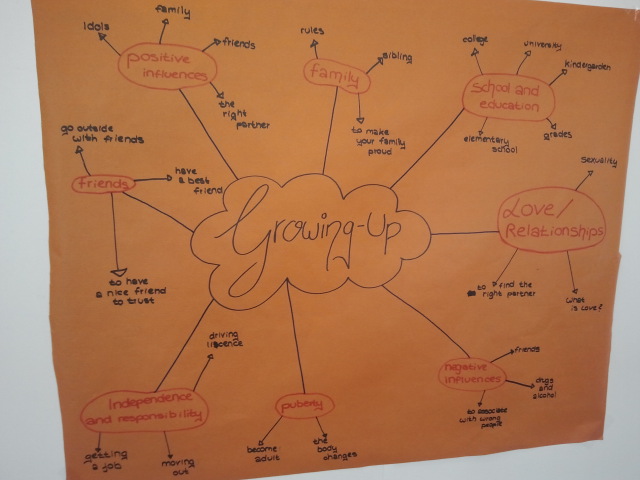 Growing-Up
positive
influences
idols
family
friends
the
right
partner
family
rules
sibling
to make
your family
proud
school and
education
college
university
kindergarden
grades
elementary
school
Love/
Relationships
sexuality
to find the
right partner
what
is love?
negative
influences
friends
drugs
and
alcohol
to associate
with wrong
people
puberty
become
adult
the
body
changes
Independence
and responsibility
driving
liscence
getting
a job
moving
out
friends
go outside
with friends
have
a best
friend
to have
a nice friend
to trust